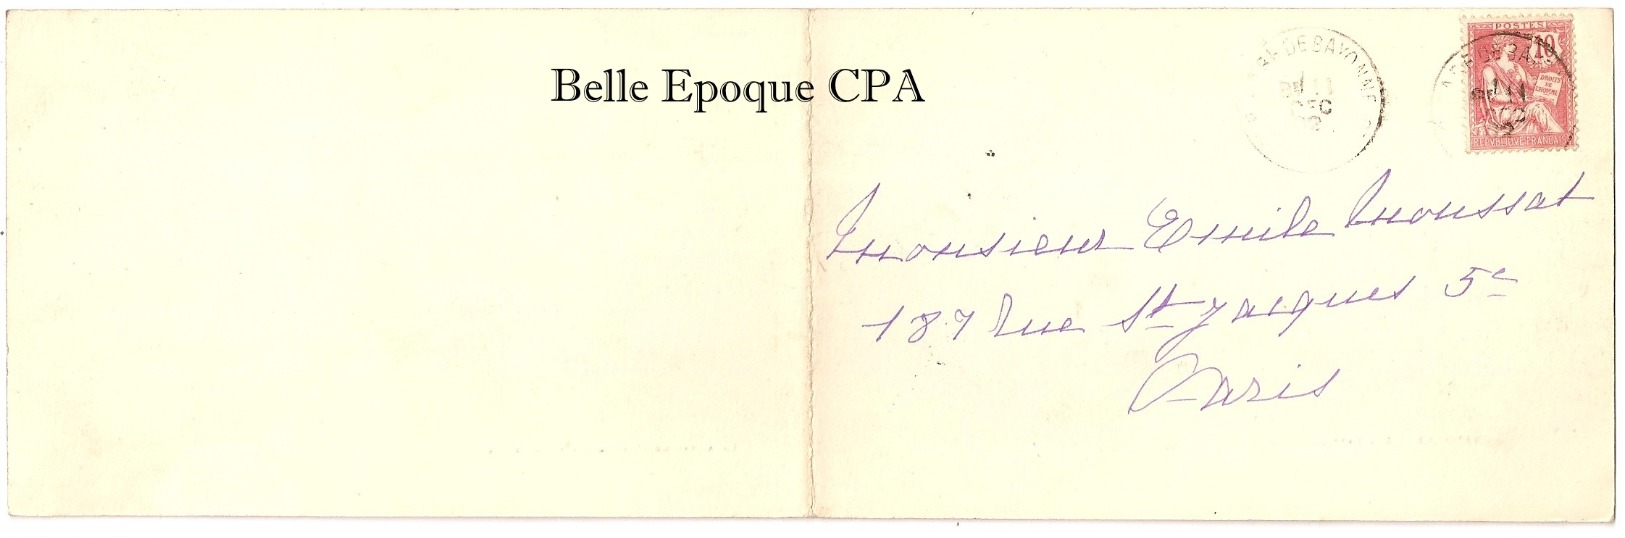 Belle Epoque CPA
POSTES
10
DROITS DE L'HOMME
REPUBLIQUE FRANCAISE
DE BAYONNE
11
DEC
Monsieur Emile Moussat
187 Rue St Jacques 5e
Paris